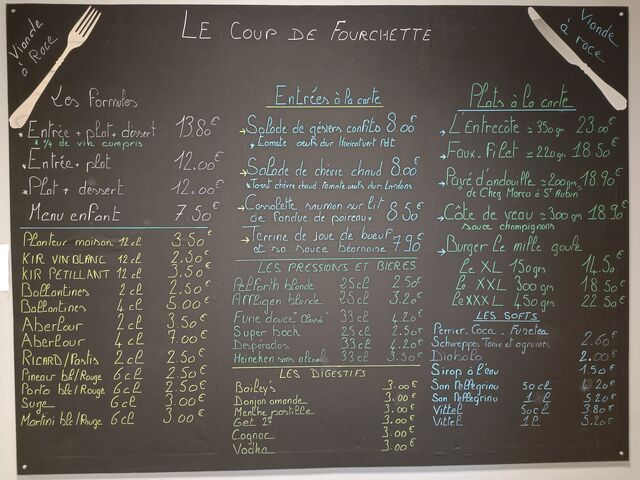 Viande
à Race
LE COUP DE FOURCHETTE
Viande
à race
Les Formules
Entrée + plat + dessert 13.80€
* 1/4 de vin compris
Entrée + plat 12.00€
Plat + dessert 12.00€
Menu enfant 7.50€
Planteur maison 12cl 3.50€
KIR VIN BLANC 12cl 2.50€
KIR PETILLANT 12cl 3.50€
Ballantines 2cl 2.50€
Ballantines 4cl 5.00€
Aberlour 2cl 3.50€
Aberlour 4cl 7.00€
RICARD/Pastis 2cl 2.50€
Pineau bl/Rouge 6cl 2.50€
Porto bl/Rouge 6cl 2.50€
Suze 6cl 3.00€
Martini bl/Rouge 6cl 3.00€
Entrées à la carte
Salade de gésiers confits 8.00€
* Tomate oeufs dur Haricotvert
Salade de chèvre chaud 8.00€
* Toast chèvre chaud tomate oeufs dur Lardons
Cassolette saumon sur lit 8.50€
de Fondue de poireaux
Terrine de joue de boeuf 7.90€
et sa sauce béarnaise
LES PRESSIONS ET BIERES
Pelforth blonde 25cl 2.50€
Affligen blonde 25cl 3.20€
Furie douce "Classé" 33cl 4.20€
Super bock 25cl 2.50€
Desperados 33cl 4.20€
Heineken sans alcool 33cl 3.50€
LES DIGESTIFS
Bailey's 3.00€
Donjon amande 3.00€
Menthe pastille 3.00€
Get 27 3.00€
Cognac 3.00€
Vodka 3.00€
Plats à la carte
L'Entrecôte ≃ 350gr 23.00€
Faux-Filet ≃ 220gr 18.50€
Pavé d'andouille ≃ 200gr 18.90€
de Chez Marco à St Aubin
Côte de veau ≃ 300gr 18.90€
sauce champignons
Burger Le mille goule
Le XL 150gr 14.50€
Le XXL 300gr 18.50€
Le XXXL 450gr 22.50€
LES SOFTS
Perrier. Coca. Fuzetea
Schweppes Tonic et agrumes 2.60€
Diabolo 2.00€
Sirop à l'eau 1.50€
San Pellegrino 50cl 4.20€
San Pellegrino 1l 5.20€
Vittel 50cl 3.80€
Vittel 1l 5.20€